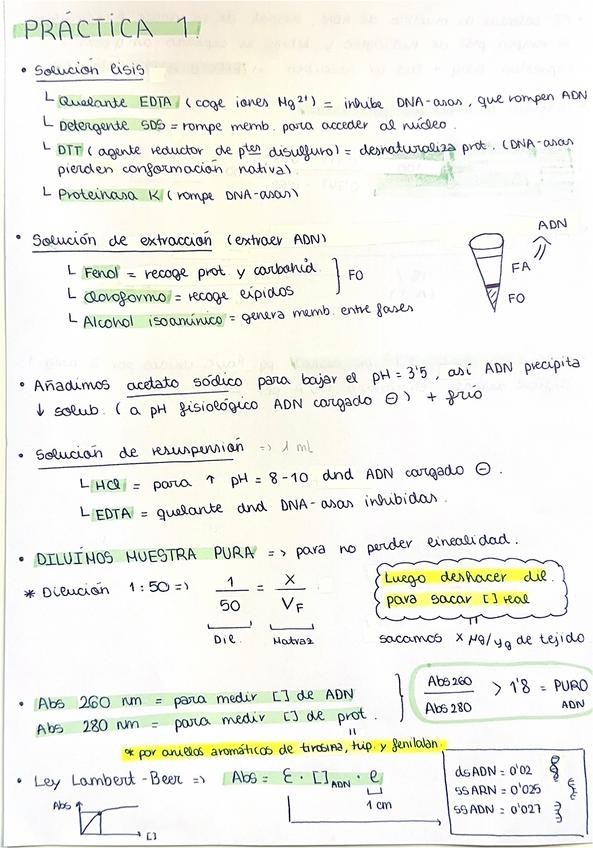 PRÁCTICA 1.
• Solución lisis
Quelante EDTA (coge iones Mg²⁺) = inhibe DNA-asas, que rompen ADN
Detergente SDS = rompe memb. para acceder al núcleo.
DTT (agente reductor de ptes disulfuro) = desnaturaliza prot. (DNA-asas
pierden conformación nativa).
Proteinasa K (rompe DNA-asas)
• Solución de extracción (extraer ADN)
Fenol = recoge prot y carbohid.
Cloroformo = recoge lípidos
FO
Alcohol isoamínico = genera memb. entre fases
ADN
FA
FO
• Añadimos acetato sódico para bajar el pH = 3'5, así ADN precipita
↓ solub. (a pH fisiológico ADN cargado ⊖) + frío
• Solución de resuspensión => 1 ml
HCl = para ↑ pH = 8-10 dnd ADN cargado ⊖.
EDTA = quelante dnd DNA-asas inhibidas.
• DILUÍMOS MUESTRA PURA => para no perder linealidad.
* Dilución 1:50 => 1/50 = X/VF
Dil. Matraz
Luego deshacer dil.
para sacar [] real
sacamos x µg/yg de tejido
• Abs 260 nm = para medir [] de ADN
Abs 280 nm = para medir [] de prot.
Abs260/Abs280 > 1'8 = PURO
ADN
* por anillos aromáticos de tirosina, trip. y fenilalan.
• Ley Lambert-Beer => Abs = ε · []ADN · l
1 cm
Abs
[]
dsADN = 0'02
ssARN = 0'025
ssADN = 0'027